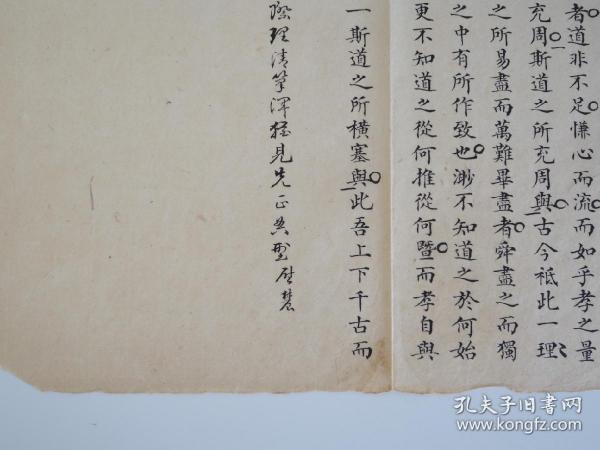 者道非不足慊心而流而如乎孝之量
充周斯道之所充周與古今祗此一理
之所易盡而萬難畢盡者舜盡之而獨
之中有所作致也渺不知道之於何始
更不知道之從何推從何暨而孝自與
一斯道之所橫塞與此吾上下千古而
理清筆渾猶見先正典型
孔夫子旧书网
www.kongfz.com